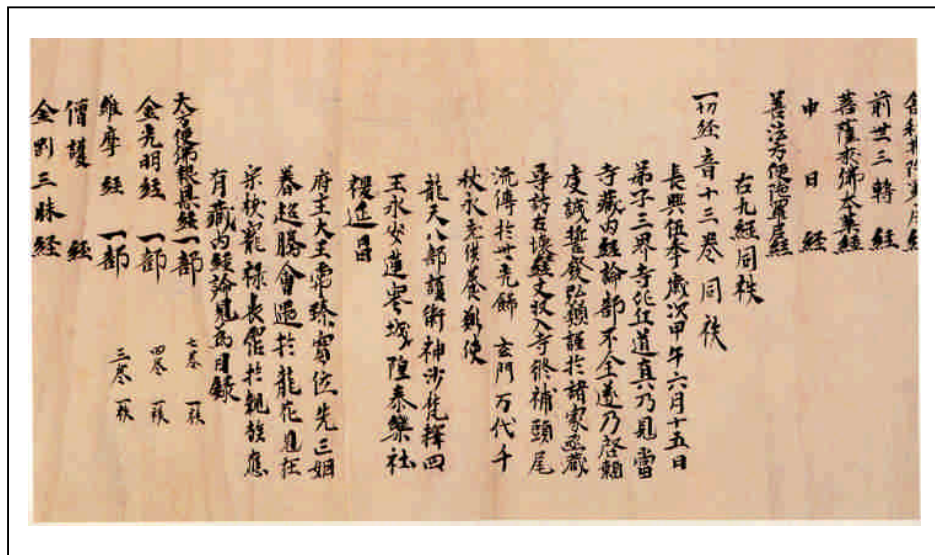 前世三轉經
菩薩求佛本業經
申日經
善法方便陁羅尼經
右九經同袟
一切經音十三卷同袟
長興伍年歲次甲午六月十五日
弟子三界寺比丘道真乃見當
寺藏內經論部不全遂乃啓顙
虔誠誓發弘願謹於諸家函藏
尋訪古壞經文收入寺修補頭尾
流傳於世光飾玄門万代千
秋永充供養願使
龍天八部護衛神沙梵釋四
王永安蓮塞城隍泰樂社
稷延昌
府王大王常臻寶位先亡姻
眷超騰會遇於龍花見在
宗枝寵祿長沾於親族應
有藏內經論見為目錄
大方便佛報恩經一部 七卷 一袟
金光明經一部 四卷 一袟
維摩經一部 三卷 一袟
僧護經
金剛三昧經